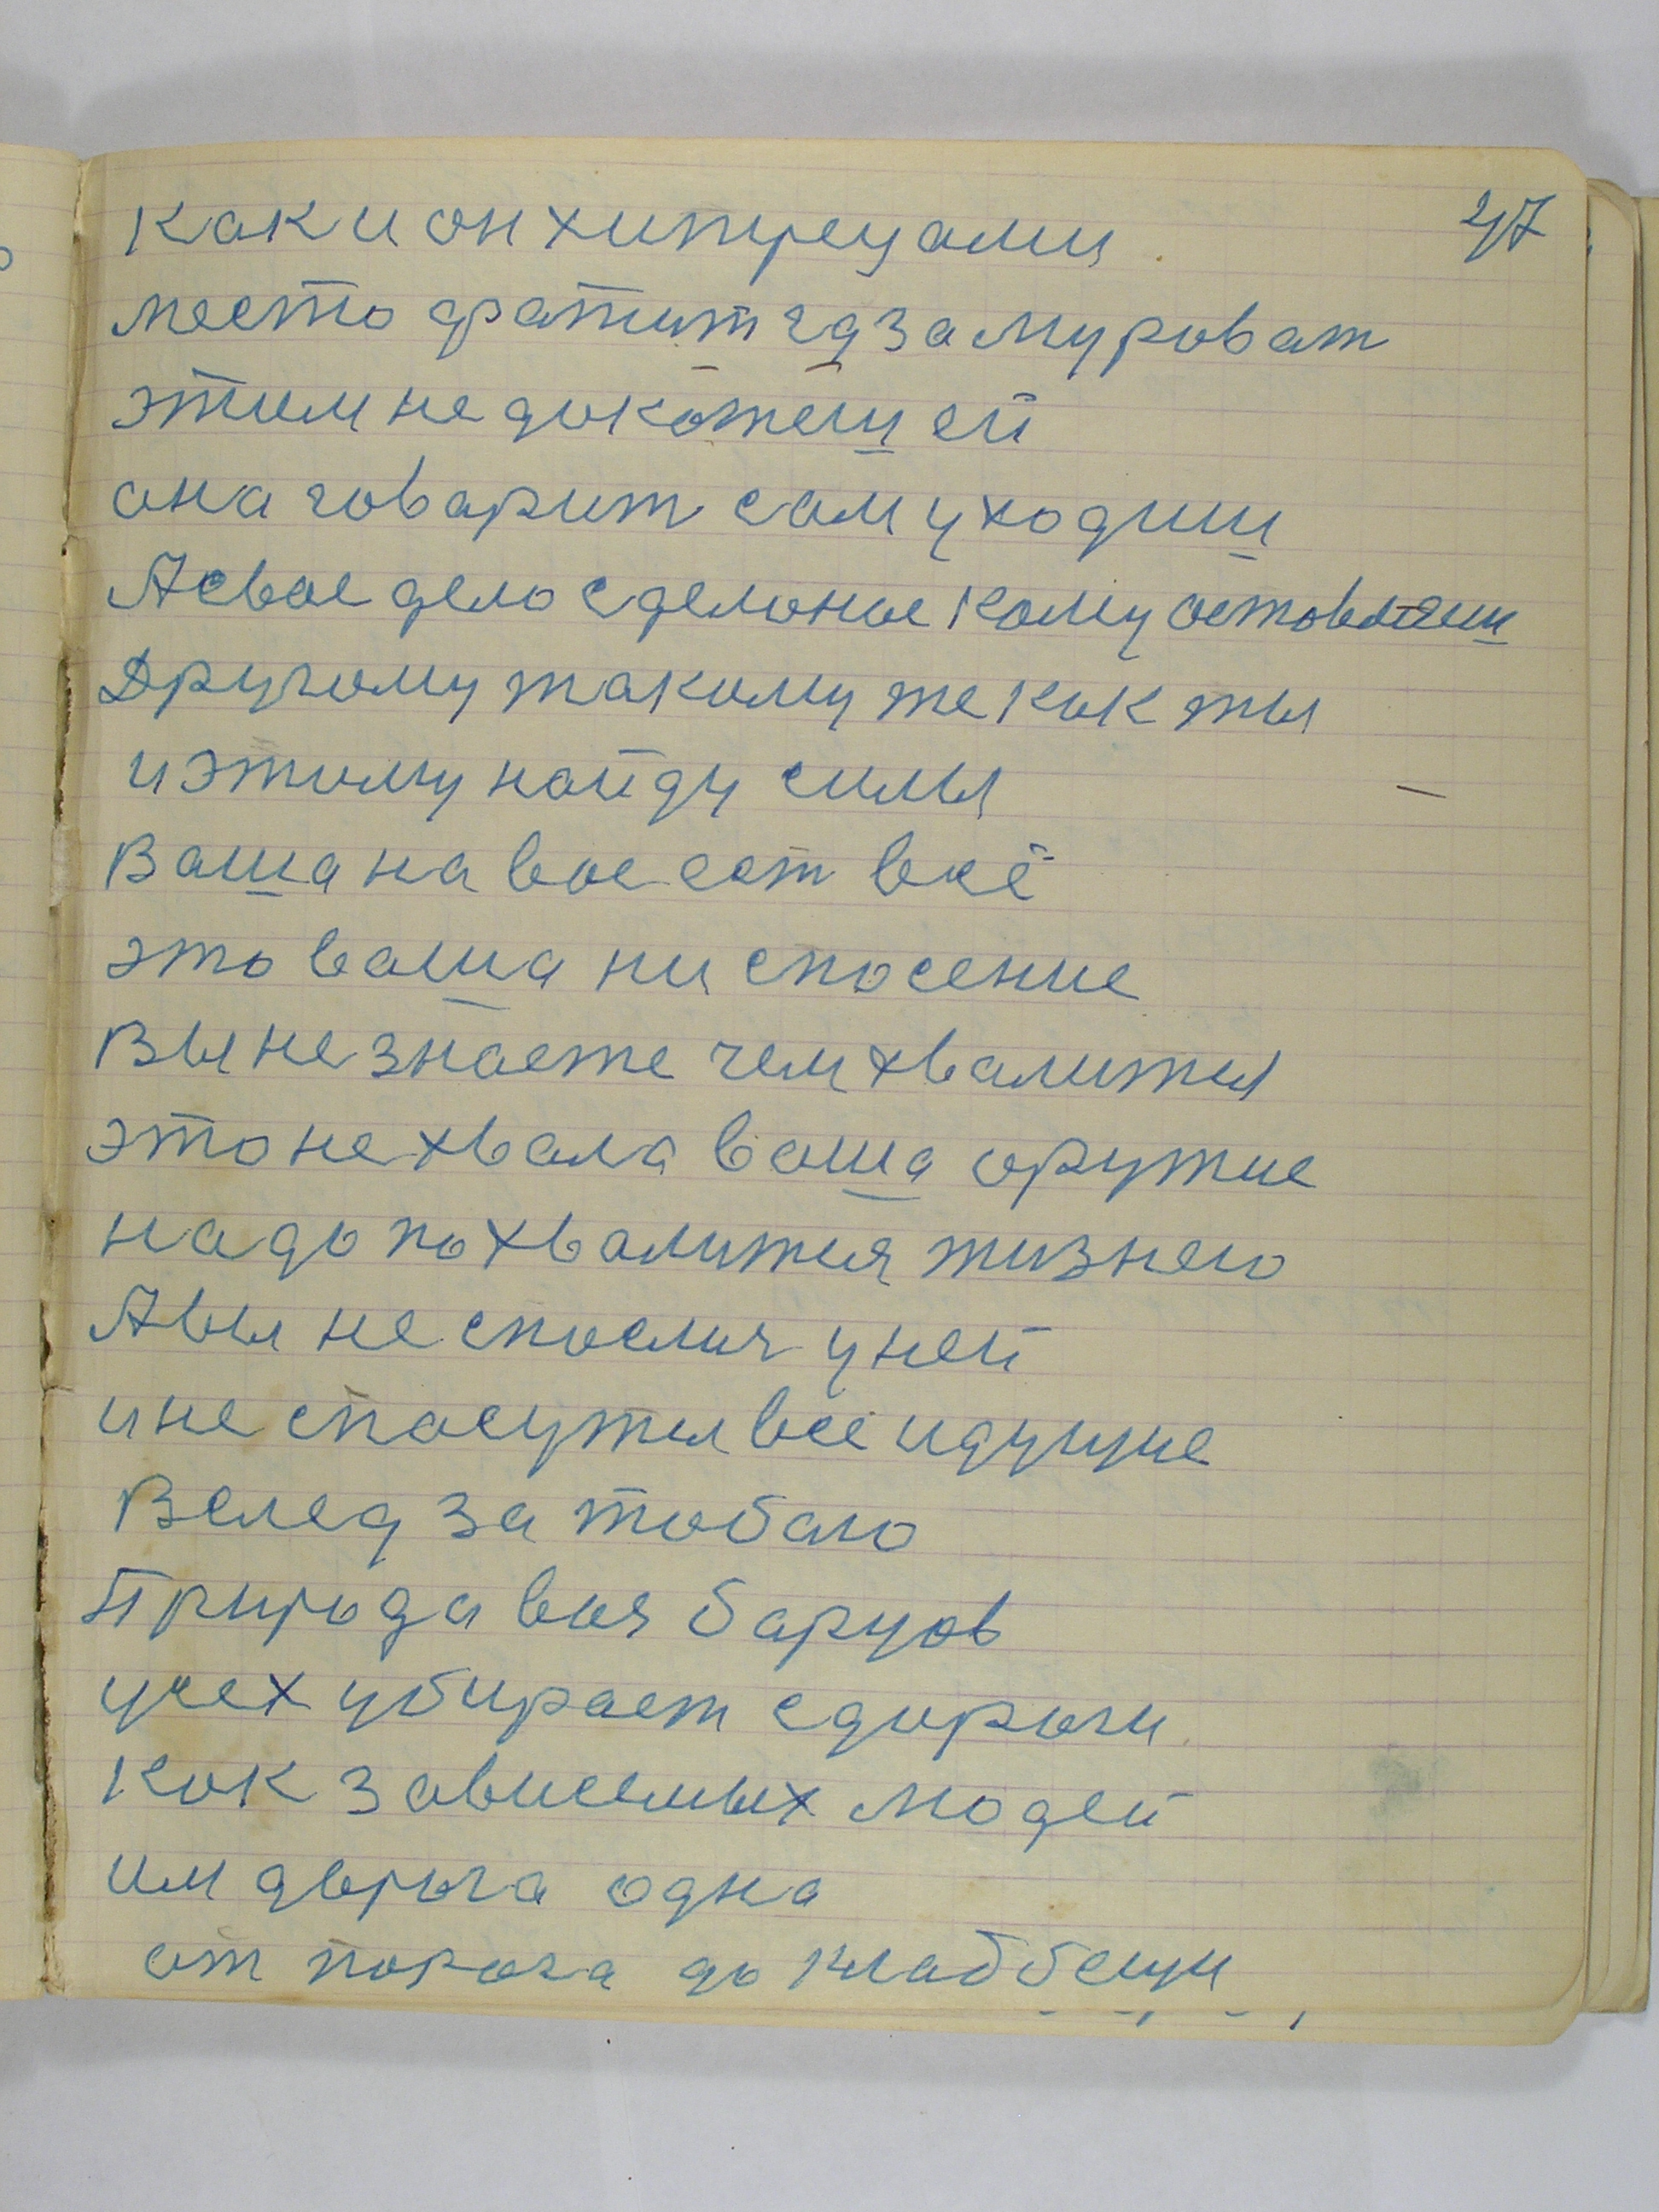 47
как и он хитрецами
место фатит гд замуроват
этим не докожеш ей
она говарит сам уходиш
А свое дело сделоное кому оставляеш
Другому такому же как ты
и этому найду силы
Ваша на вас ест всё
это ваша ни спосение
Вы не знаете чем хвалится
это не хвала ваша оружие
надо похвалится жизнею
А вы не спослис у ней
и не спосутся все идущие
Вслед за тобаю
Природа всех барцов
усех убирает с дороги
Как зависемых людей
им дарога одна
от порога до кладбещи